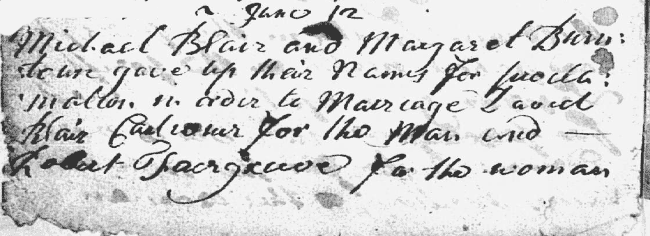 June 12
Michael Blair and Margaret Burn:
toun gave up their Names for procla:
mation in order to Marriage David
Blair Cautioner for the Man and
Robert for the woman